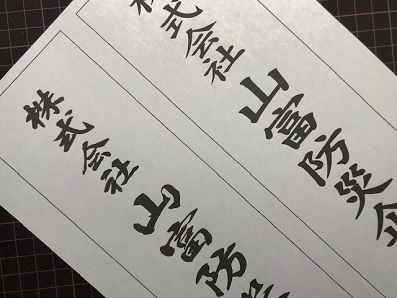 株式会社 山富防災企
株式会社 山富防